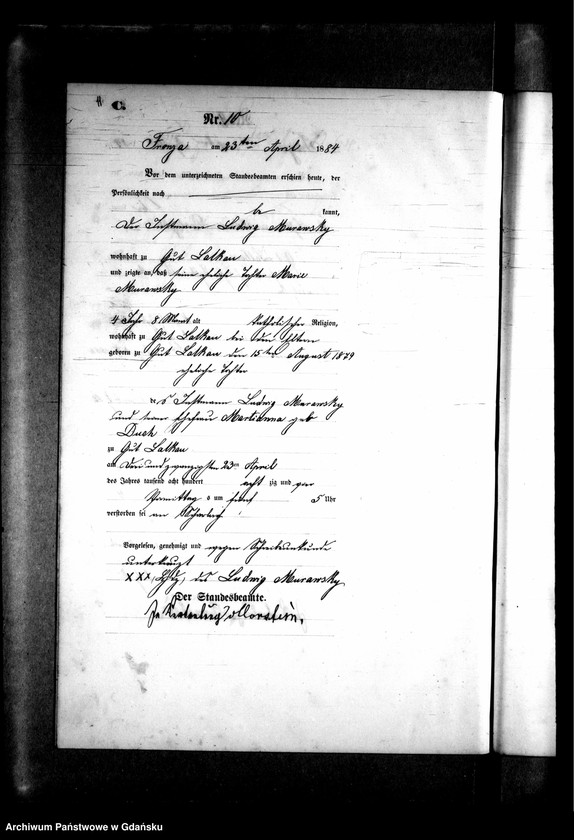 C.
Nr. 10
Fronza am 23ten April 1884
Vor dem unterzeichneten Standesbeamten erschien heute, der
Persönlichkeit nach
be kannt,
Der Instmann Ludwig Murawsky
wohnhaft zu Gut Lalkau
und zeigte an, daß seine eheliche Tochter Marie
Murawsky
4 Jahr 8 Monat alt Katholischer Religion,
wohnhaft zu Gut Lalkau bei den Eltern
geboren zu Gut Lalkau den 15ten August 1879
eheliche Tochter
des Instmann Ludwig Murawsky
und seiner Ehefrau Marianna geb
Duch
zu Gut Lalkau
am Drei und zwanzigsten 23ten April
des Jahres tausend acht hundert acht zig und vier
Vormittag s um fünf 5 Uhr
verstorben sei an Scharlach
Vorgelesen, genehmigt und wegen Schreibunkunde
unterkreuzt
XXX, des Ludwig Murawsky
Der Standesbeamte.
Archiwum Państwowe w Gdańsku